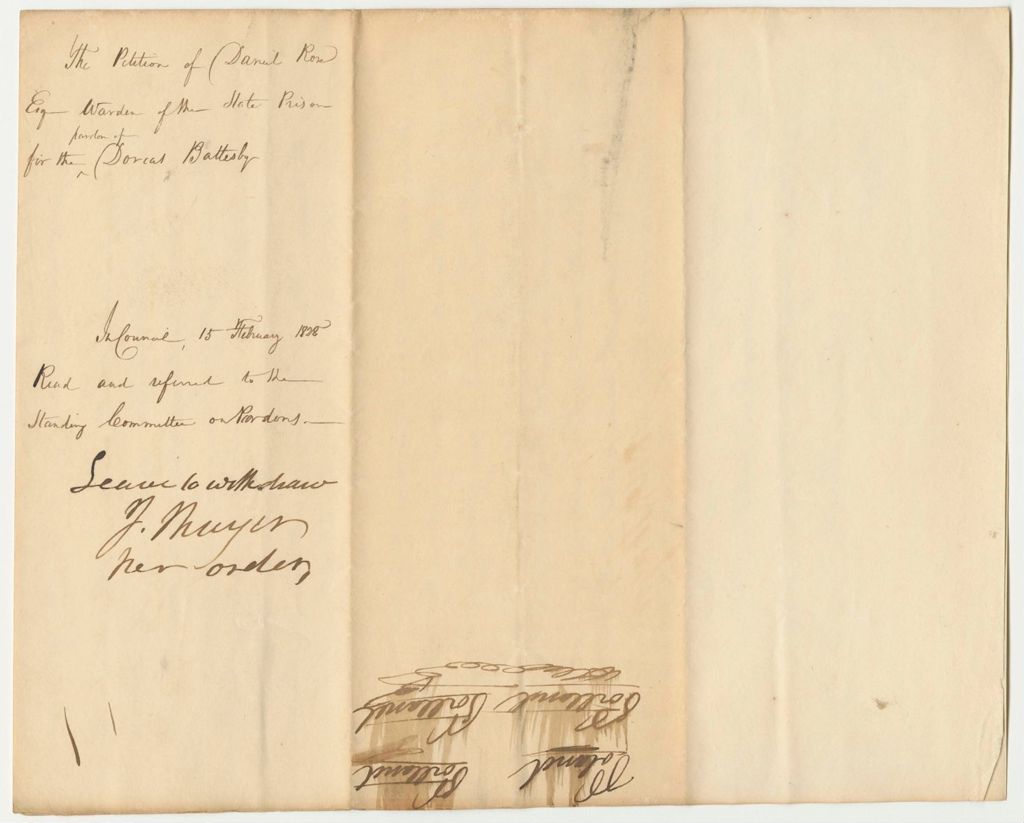 The Petition of Daniel Rose
Esq Warden of the State Prison
for the pardon of Dorcas Battesby
In Council, 15 February 1828
Read and referred to the
Standing Committee on Pardons.
Leave to withdraw
per order
Portland Portland
Poland Portland